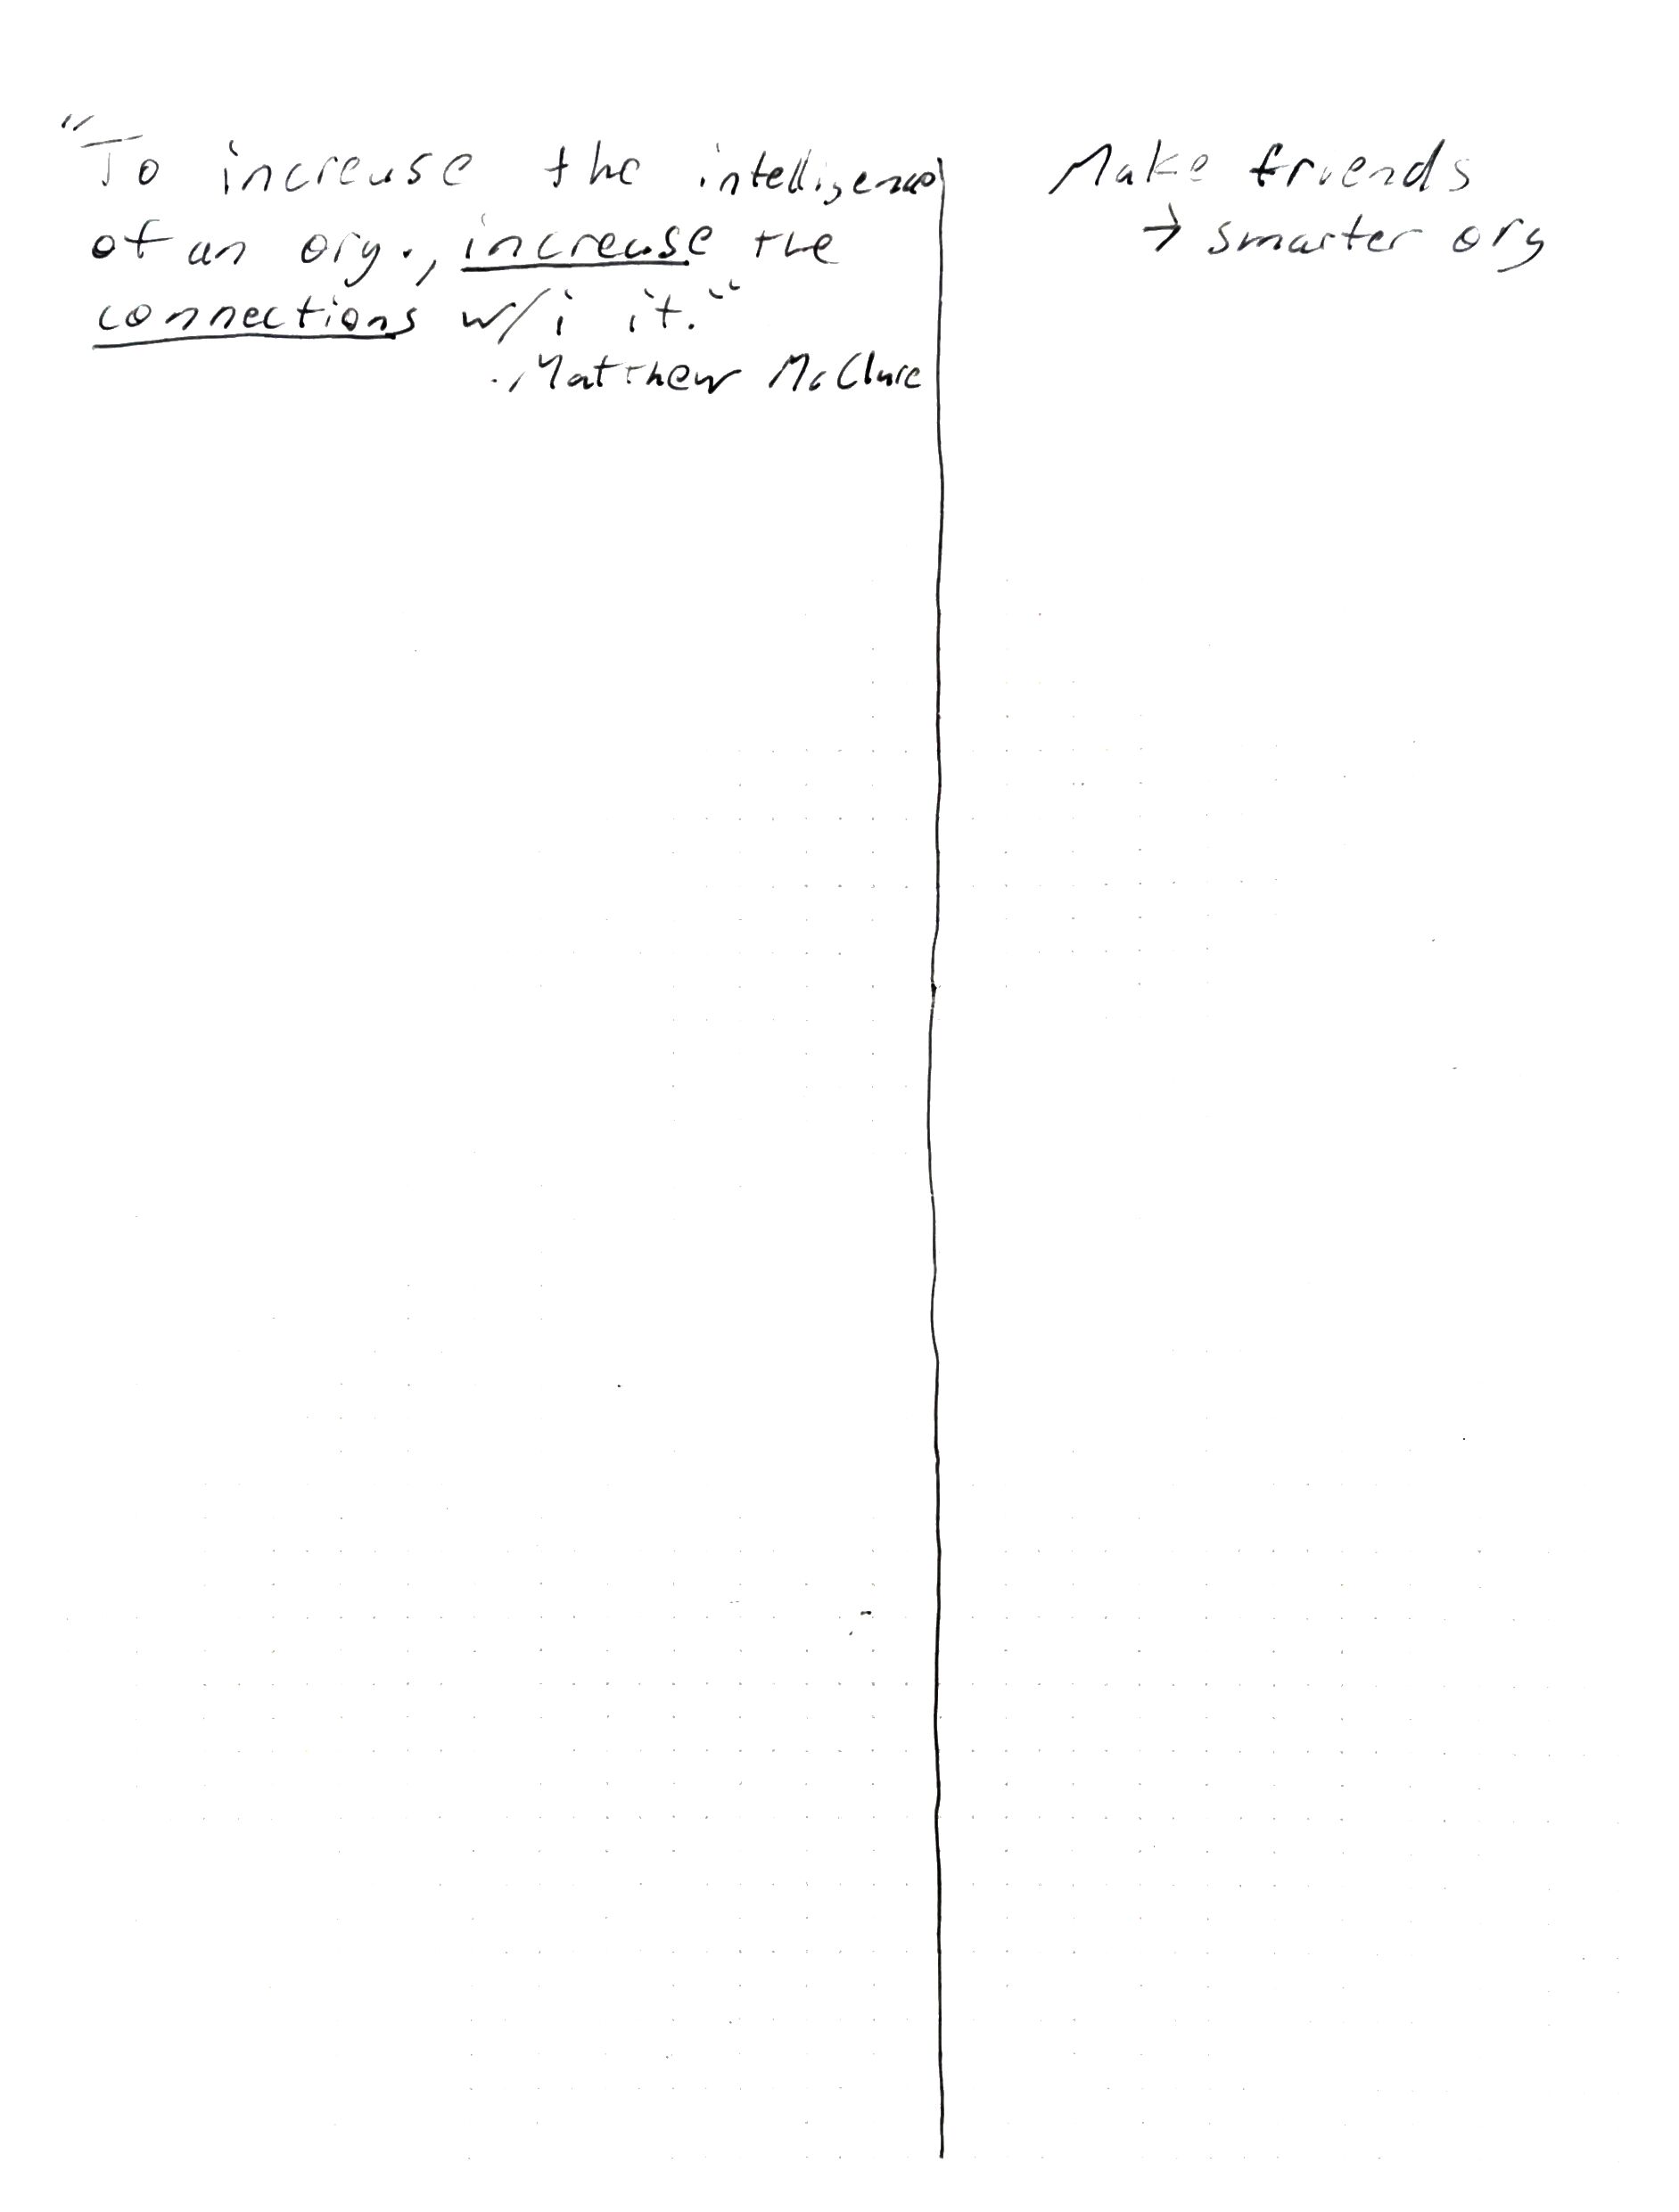 "To increase the intelligence
of an org., increase the
connections w/i it."
- Matthew McClure
Make friends
→ smarter org